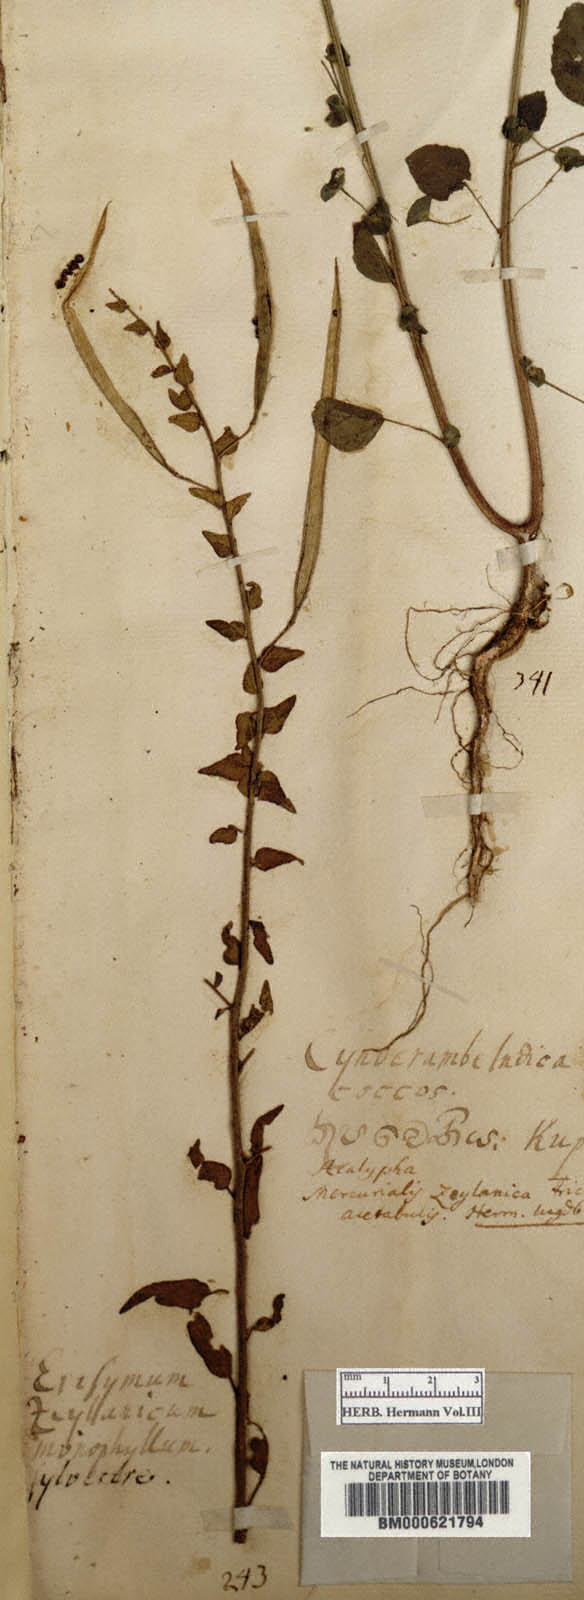 341
Cynocrambe Indica
coccos.
Kup
Acalypha
Mercurialis Zeylanica tric
acetabulis. Herm. lugdb
Erisymum
Zeylanicum
monophyllum.
sylvestre.
243
mm 1 2 3
HERB. Hermann Vol.III
THE NATURAL HISTORY MUSEUM,LONDON
DEPARTMENT OF BOTANY
BM000621794